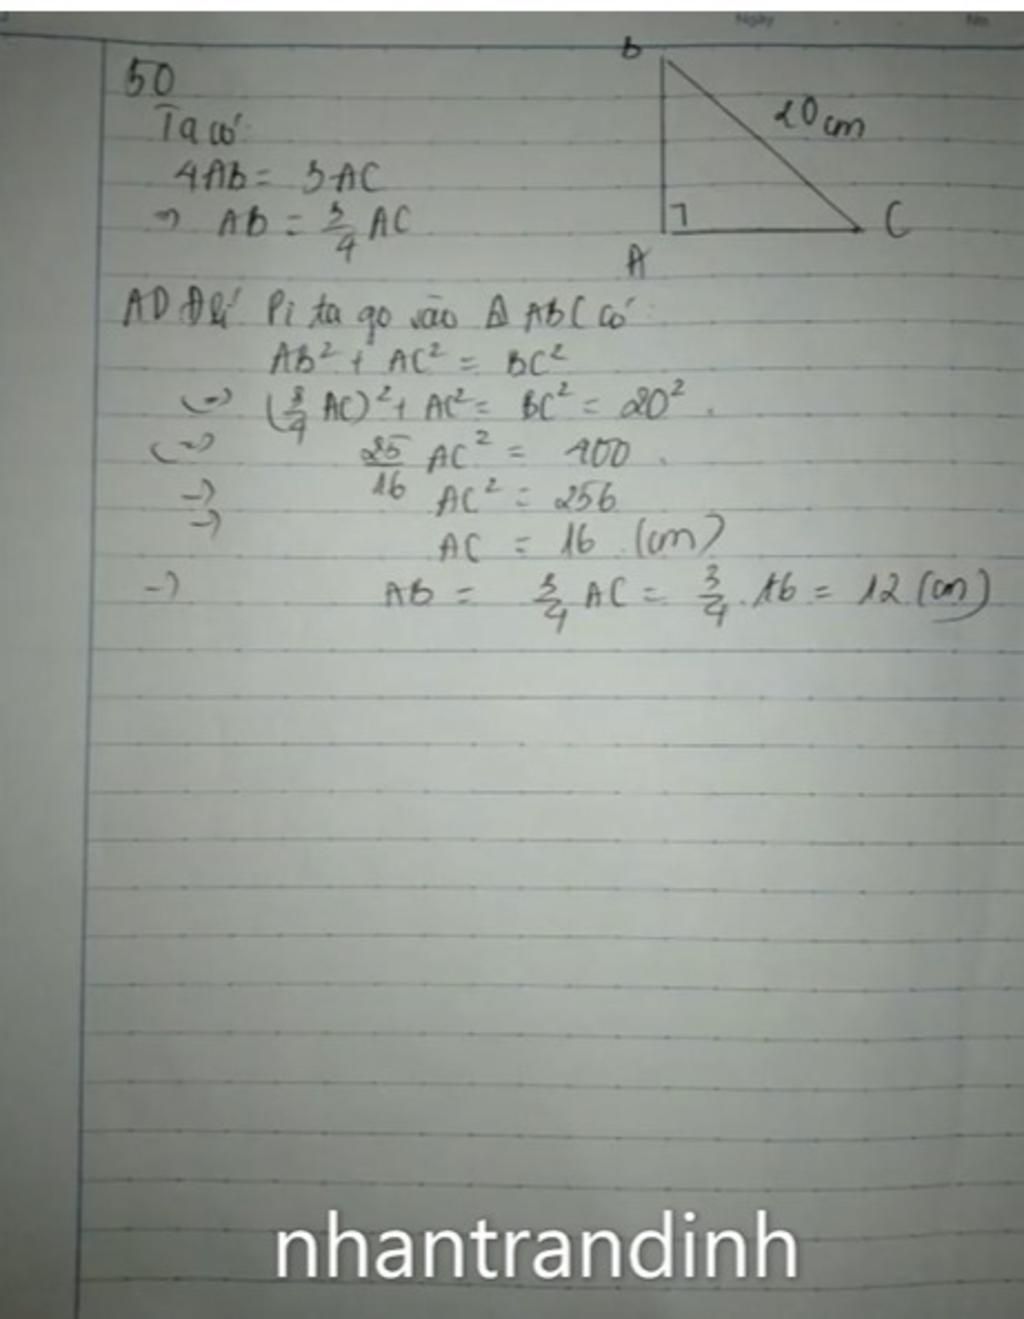 Ngày
No
50
B
20cm
Ta có:
4AB = 3AC
=> AB = 3/4 AC
C
A
AD Đlí Pi ta go vào Δ ABC có:
AB² + AC² = BC²
(=) (3/4 AC)² + AC² = BC² = 20².
(=) 25/16 AC² = 400.
=> AC² = 256
=> AC = 16 (cm)
=> AB = 3/4 AC = 3/4 . 16 = 12 (cm)
nhantrandinh